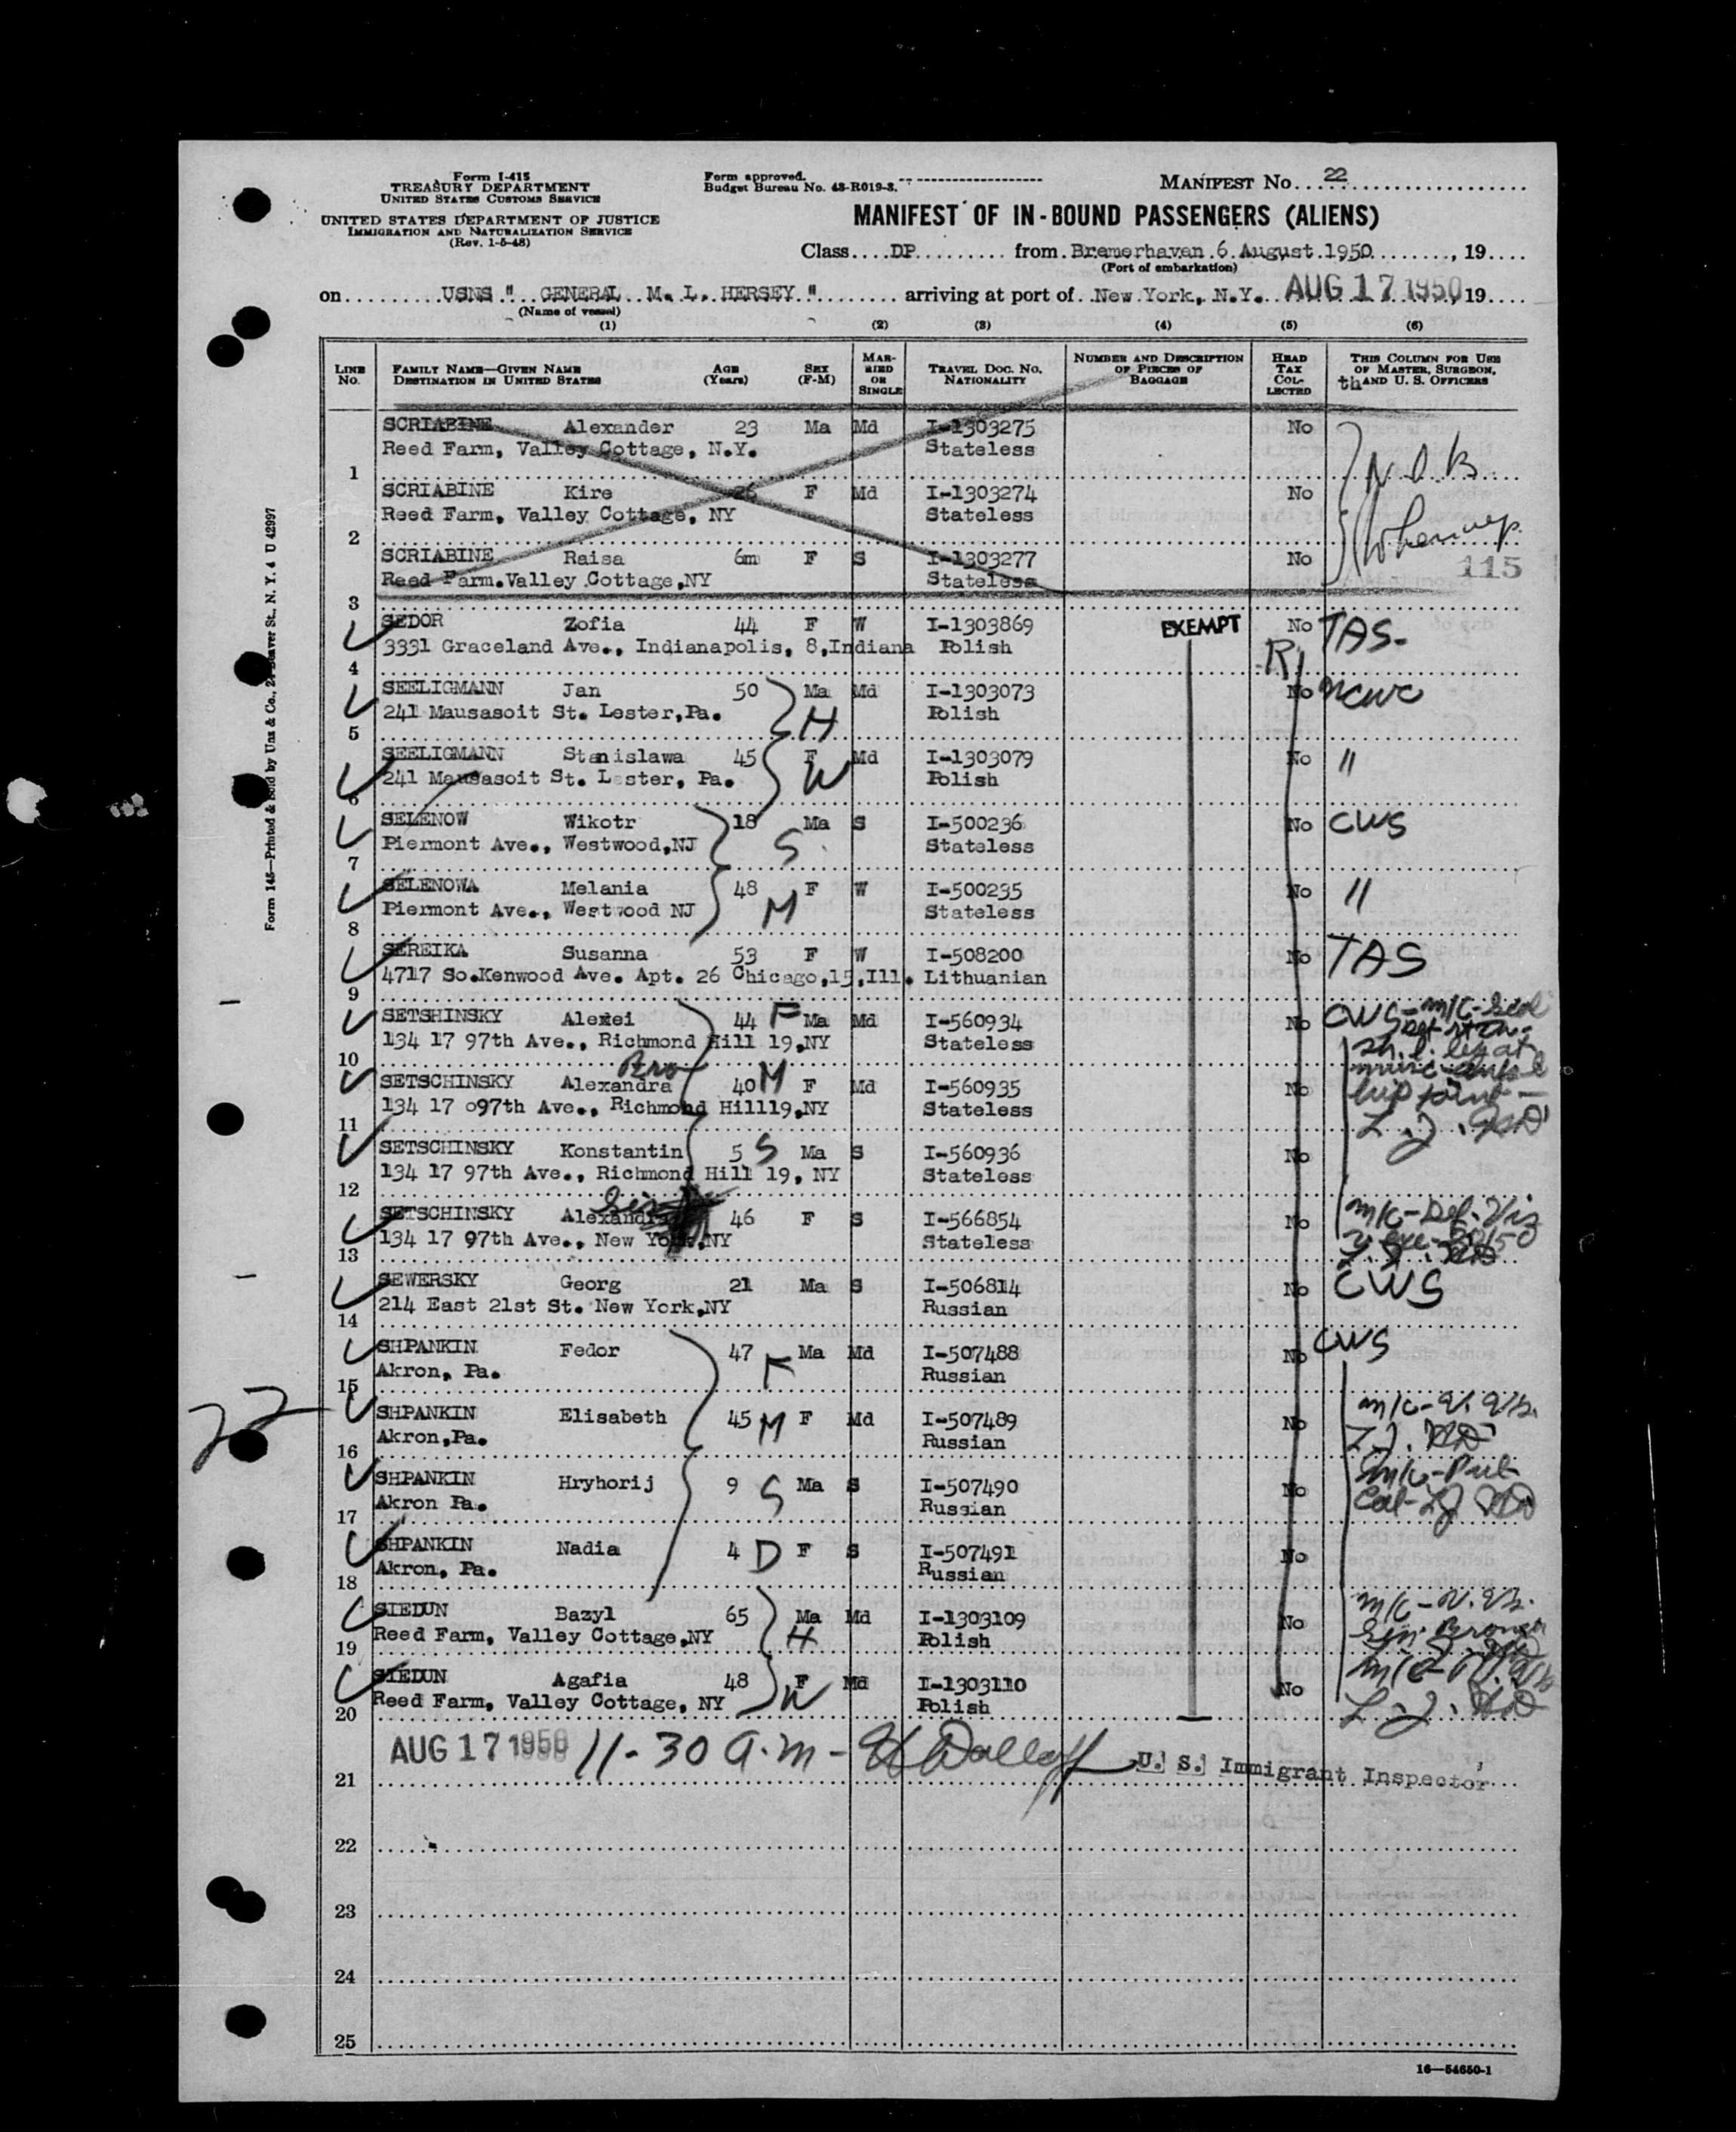 Form I-415
TREASURY DEPARTMENT
UNITED STATES CUSTOMS SERVICE
UNITED STATES DEPARTMENT OF JUSTICE
IMMIGRATION AND NATURALIZATION SERVICE
(Rev. 1-5-48)
Form approved.
Budget Bureau No. 43-R019-3.
MANIFEST NO. 22
MANIFEST OF IN-BOUND PASSENGERS (ALIENS)
Class DP from Bremerhaven 6 August 1950, 19
(Port of embarkation)
on USNS " GENERAL M. L. HERSEY " arriving at port of New York, N.Y. AUG 17 1950, 19
(Name of vessel)
(1) (2) (3) (4) (5) (6)
LINE NO. FAMILY NAME—GIVEN NAME DESTINATION IN UNITED STATES AGE (Years) SEX (F-M) MARRIED OR SINGLE TRAVEL DOC. NO. NATIONALITY NUMBER AND DESCRIPTION OF PIECES OF BAGGAGE HEAD TAX COLLECTED THIS COLUMN FOR USE OF MASTER, SURGEON, AND U. S. OFFICERS
SCRIABINE Alexander 23 Ma Md I-1303275 No
Reed Farm, Valley Cottage, N.Y. Stateless
1
SCRIABINE Kire 26 F Md I-1303274 No
Reed Farm, Valley Cottage, NY Stateless
2
SCRIABINE Raisa 6m F S I-1303277 No
Reed Farm.Valley Cottage,NY Stateless
115
3
SEDOR Zofia 44 F W I-1303869 EXEMPT No TAS-
3331 Graceland Ave., Indianapolis, 8,Indiana Polish
4
SEELIGMANN Jan 50 Ma Md I-1303073 No NCWC
241 Mausasoit St. Lester,Pa. H Polish
5
SEELIGMANN Stanislawa 45 F Md I-1303079 No "
241 Mausasoit St. Lester, Pa. W Polish
6
SELENOW Wikotr 18 Ma S I-500236 No CWS
Piermont Ave., Westwood,NJ S Stateless
7
SELENOWA Melania 48 F W I-500235 No "
Piermont Ave., Westwood NJ M Stateless
8
SEREIKA Susanna 53 F W I-508200 No TAS
4717 So.Kenwood Ave. Apt. 26 Chicago,15,Ill. Lithuanian
9
SETSHINSKY Alexei 44 F Ma Md I-560934 No CWS
134 17 97th Ave., Richmond Hill 19,NY Stateless
10
SETSCHINSKY Alexandra 40 M F Md I-560935 No
134 17 o97th Ave., Richmond Hill19,NY Stateless
11
SETSCHINSKY Konstantin 5 S Ma S I-560936 No
134 17 97th Ave., Richmond Hill 19, NY Stateless
12
SETSCHINSKY Alexandra 46 F S I-566854 No
134 17 97th Ave., New York,NY Stateless
13
SEWERSKY Georg 21 Ma S I-506814 No CWS
214 East 21st St. New York,NY Russian
14
SHPANKIN Fedor 47 F Ma Md I-507488 No CWS
Akron, Pa. Russian
15
22
SHPANKIN Elisabeth 45 M F Md I-507489 No
Akron,Pa. Russian
16
SHPANKIN Hryhorij 9 S Ma S I-507490 No
Akron Pa. Russian
17
SHPANKIN Nadia 4 D F S I-507491 No
Akron, Pa. Russian
18
SIEDUN Bazyl 65 Ma Md I-1303109 No
Reed Farm, Valley Cottage,NY H Polish
19
SIEDUN Agafia 48 F Md I-1303110 No
Reed Farm, Valley Cottage, NY W Polish
20
AUG 17 1950 11-30 a.m- U. S. Immigrant Inspector
21
22
23
24
25
16—54650-1